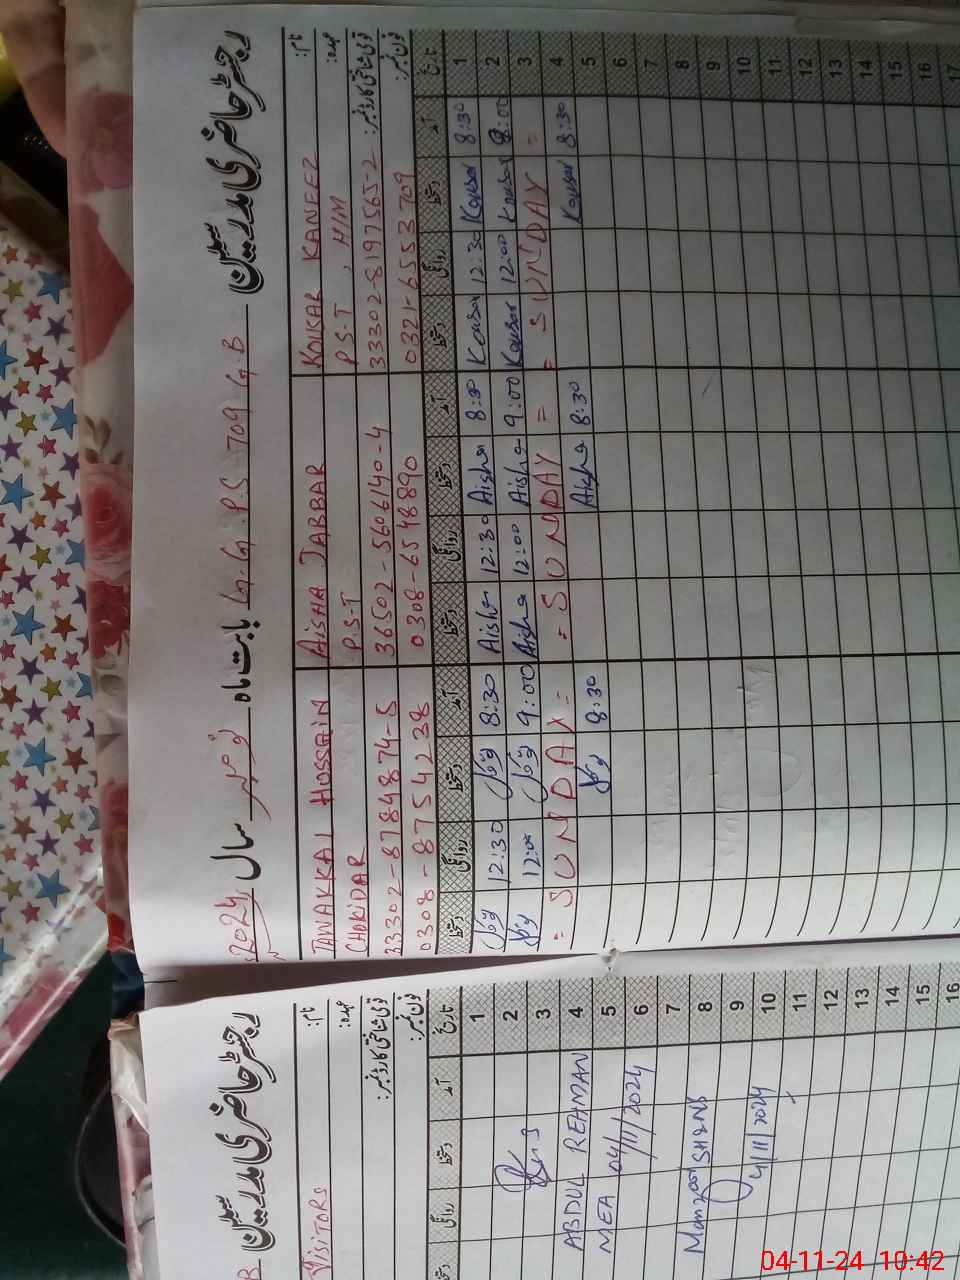 رجسٹر حاضری مدرسین G.G.P.S 709 G.B بابت ماہ نومبر سال 2024
نام: KOUSAR KANEEZ AISHA JABBAR TAWAKKAL HUSSAIN
عہدہ: P.S.T, H/M P.S-T CHOKIDAR
قومی شناختی کارڈ نمبر: 33302-8197565-2 36502-5606140-4 33302-8784874-5
فون نمبر: 0321-6553709 0308-6548890 0308-8754238
تاریخ آمد دستخط روانگی دستخط آمد دستخط روانگی دستخط آمد دستخط روانگی دستخط
1 8:30 Kousar 12:30 Kousar 8:30 Aisha 12:30 Aisha 8:30 توکل 12:30 توکل
2 9:00 Kousar 12:00 Kousar 9:00 Aisha 12:00 Aisha 9:00 توکل 12:00 توکل
3 = SUNDAY = = SUNDAY = = SUNDAY =
4 8:30 Kousar 8:30 Aisha 8:30 توکل
5
6
7
8
9
10
11
12
13
14
15
16
17
رجسٹر حاضری مدرسین B
نام: VISITORS
عہدہ:
قومی شناختی کارڈ نمبر:
فون نمبر:
تاریخ آمد دستخط روانگی
1
2
3
4 ABDUL REHMAN
5 MEA 04/11/2024
6
7
8
9
10 4/11/2024
11
12
13
14
15
16
04-11-24 10:42